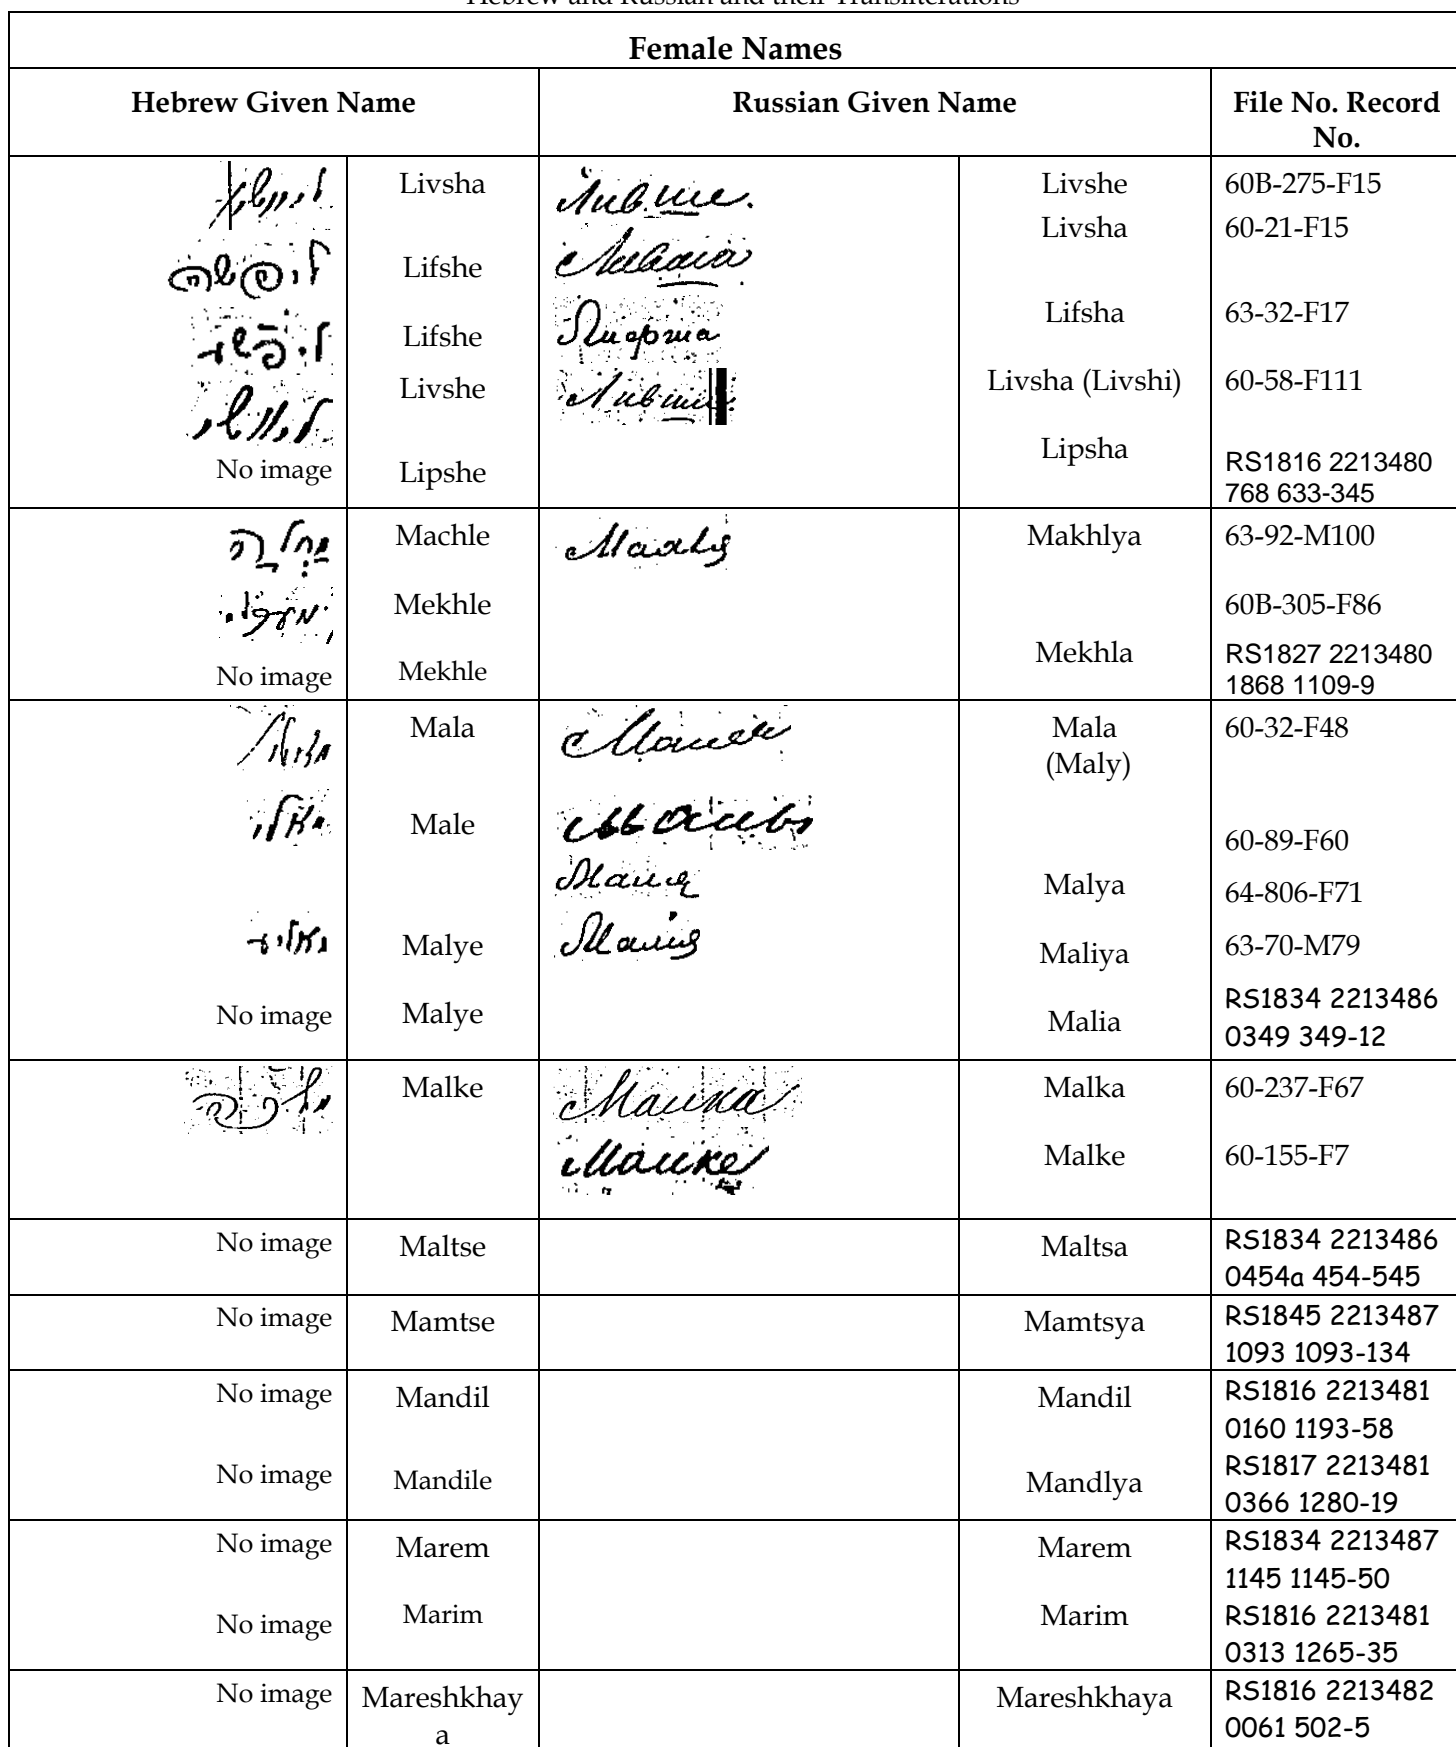 Hebrew and Russian and their Transliterations
Female Names
Hebrew Given Name Russian Given Name File No. Record No.
Livsha Ливше. Livshe 60B-275-F15
Livsha 60-21-F15
ליפשה Lifshe
Lifsha 63-32-F17
Lifshe Лифша
Livshe Livsha (Livshi) 60-58-F111
No image Lipshe Lipsha RS1816 2213480
768 633-345
מחלה Machle Махля Makhlya 63-92-M100
Mekhle 60B-305-F86
No image Mekhle Mekhla RS1827 2213480
1868 1109-9
Mala Mala 60-32-F48
(Maly)
מאלי Male Малы 60-89-F60
Маля Malya 64-806-F71
Malye Малия Maliya 63-70-M79
No image Malye Malia RS1834 2213486
0349 349-12
מלכה Malke Малка Malka 60-237-F67
Малке Malke 60-155-F7
No image Maltse Maltsa RS1834 2213486
0454a 454-545
No image Mamtse Mamtsya RS1845 2213487
1093 1093-134
No image Mandil Mandil RS1816 2213481
0160 1193-58
No image Mandile Mandlya RS1817 2213481
0366 1280-19
No image Marem Marem RS1834 2213487
1145 1145-50
No image Marim Marim RS1816 2213481
0313 1265-35
No image Mareshkhay Mareshkhaya RS1816 2213482
a 0061 502-5